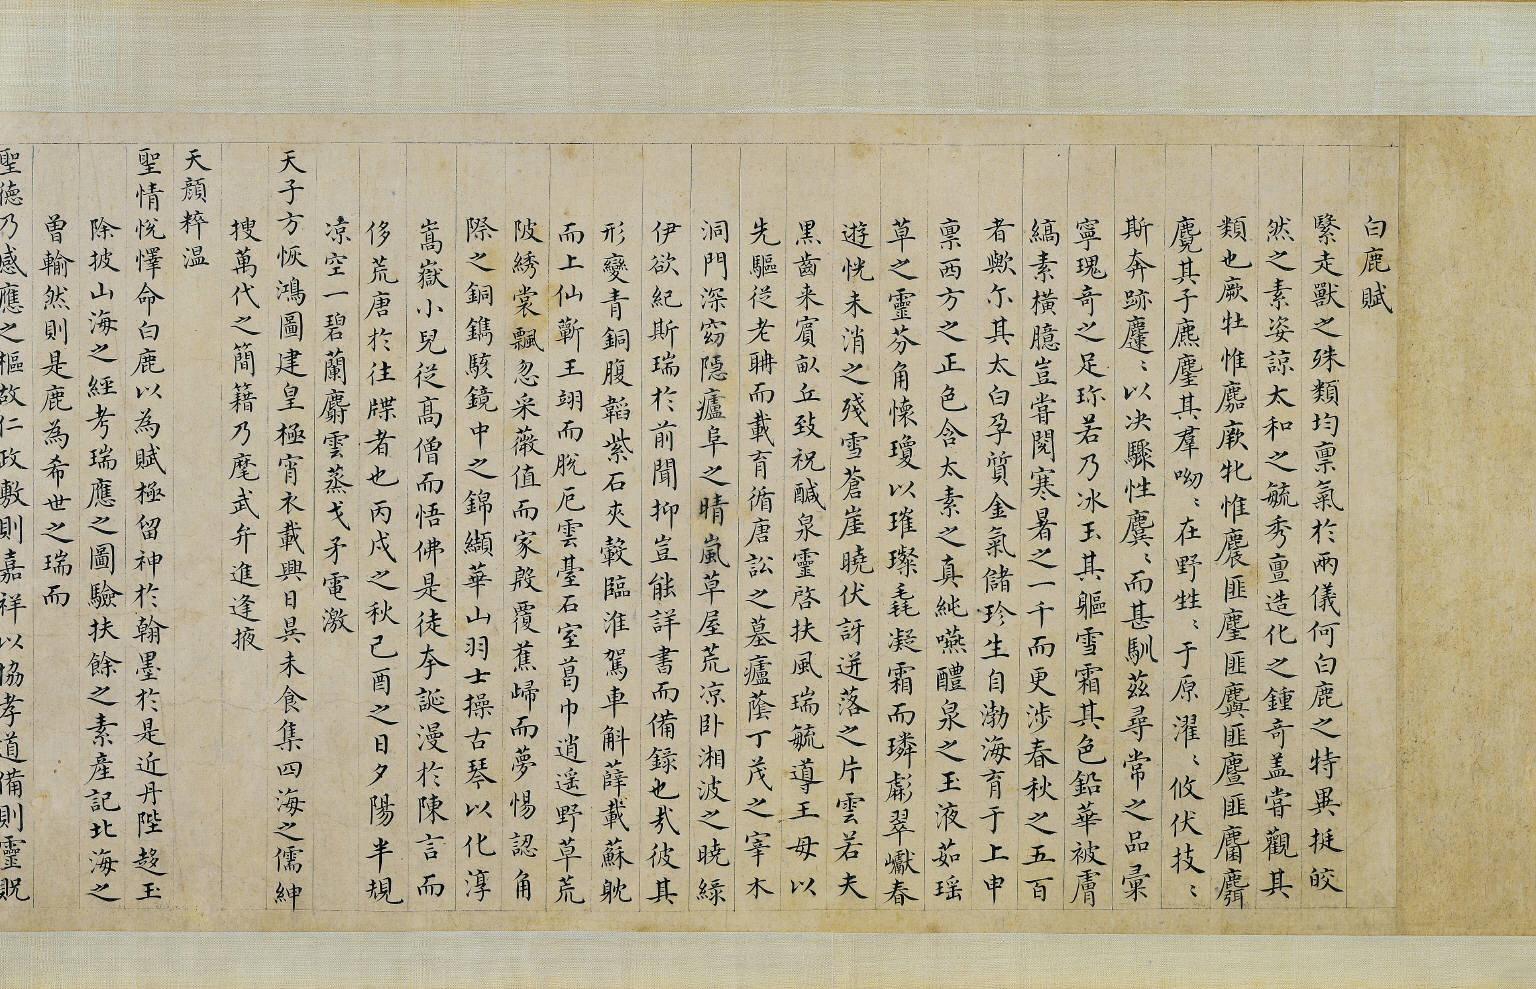 白鹿賦
繄走獸之殊類均禀氣於兩儀何白鹿之特異挺皎
然之素姿諒太和之毓秀亶造化之鍾奇盖嘗觀其
類也厥牡惟麚厥牝惟麎匪麈匪麌匪麠匪麕麛
麑其子麃麈其羣呦〻在野甡〻于原濯〻攸伏技〻
斯奔跡麈〻以决驟性麌〻而甚馴兹尋常之品彙
寧瑰奇之足珎若乃冰玉其軀雪霜其色鉛華被膚
縞素横臆豈嘗閱寒暑之一千而更渉春秋之五百
者歟尓其太白孕質金氣儲珍生自渤海育于上申
禀西方之正色含太素之真純嚥醴泉之玉液茹瑶
草之靈芬角懷瓊以璀璨毳凝霜而璘彪翠巘春
遊恍未消之殘雪蒼崖曉伏訝迸落之片雲若夫
黑齒来賓畝丘致祝醎泉靈啓扶風瑞毓導王母以
先驅従老聃而載育循唐訟之墓廬蔭丁茂之宰木
洞門深窈隱廬阜之晴嵐草屋荒凉卧湘波之暁緑
伊欲紀斯瑞於前聞抑豈能詳書而備録也㢤彼其
形變青銅腹韜紫石夾轂臨淮駕車斛薛載蘇躭
而上仙蘄王翊而脫厄雲臺石室葛巾逍遥野草荒
陂綉裳飄忽采薇值而家殷覆蕉歸而夢惕認角
際之銅鐫駭鏡中之錦纈華山羽士操古琴以化淳
嵩嶽小兒従髙僧而悟佛是徒夲誕漫於陳言而
侈荒唐於往牒者也丙戌之秋己酉之日夕陽半規
凉空一碧蘭麝雲蒸戈矛電激
天子方恢鴻圖建皇極宵衣載興日昃未食集四海之儒紳
搜萬代之簡籍乃麾武弁進逢掖
天顔粹温
聖情悅懌命白鹿以為賦極留神於翰墨於是近丹陛趍玉
除披山海之經考瑞應之圖驗扶餘之素産記北海之
曽輸然則是鹿為希世之瑞而
聖德乃感應之樞故仁政敷則嘉祥以協孝道備則靈貺